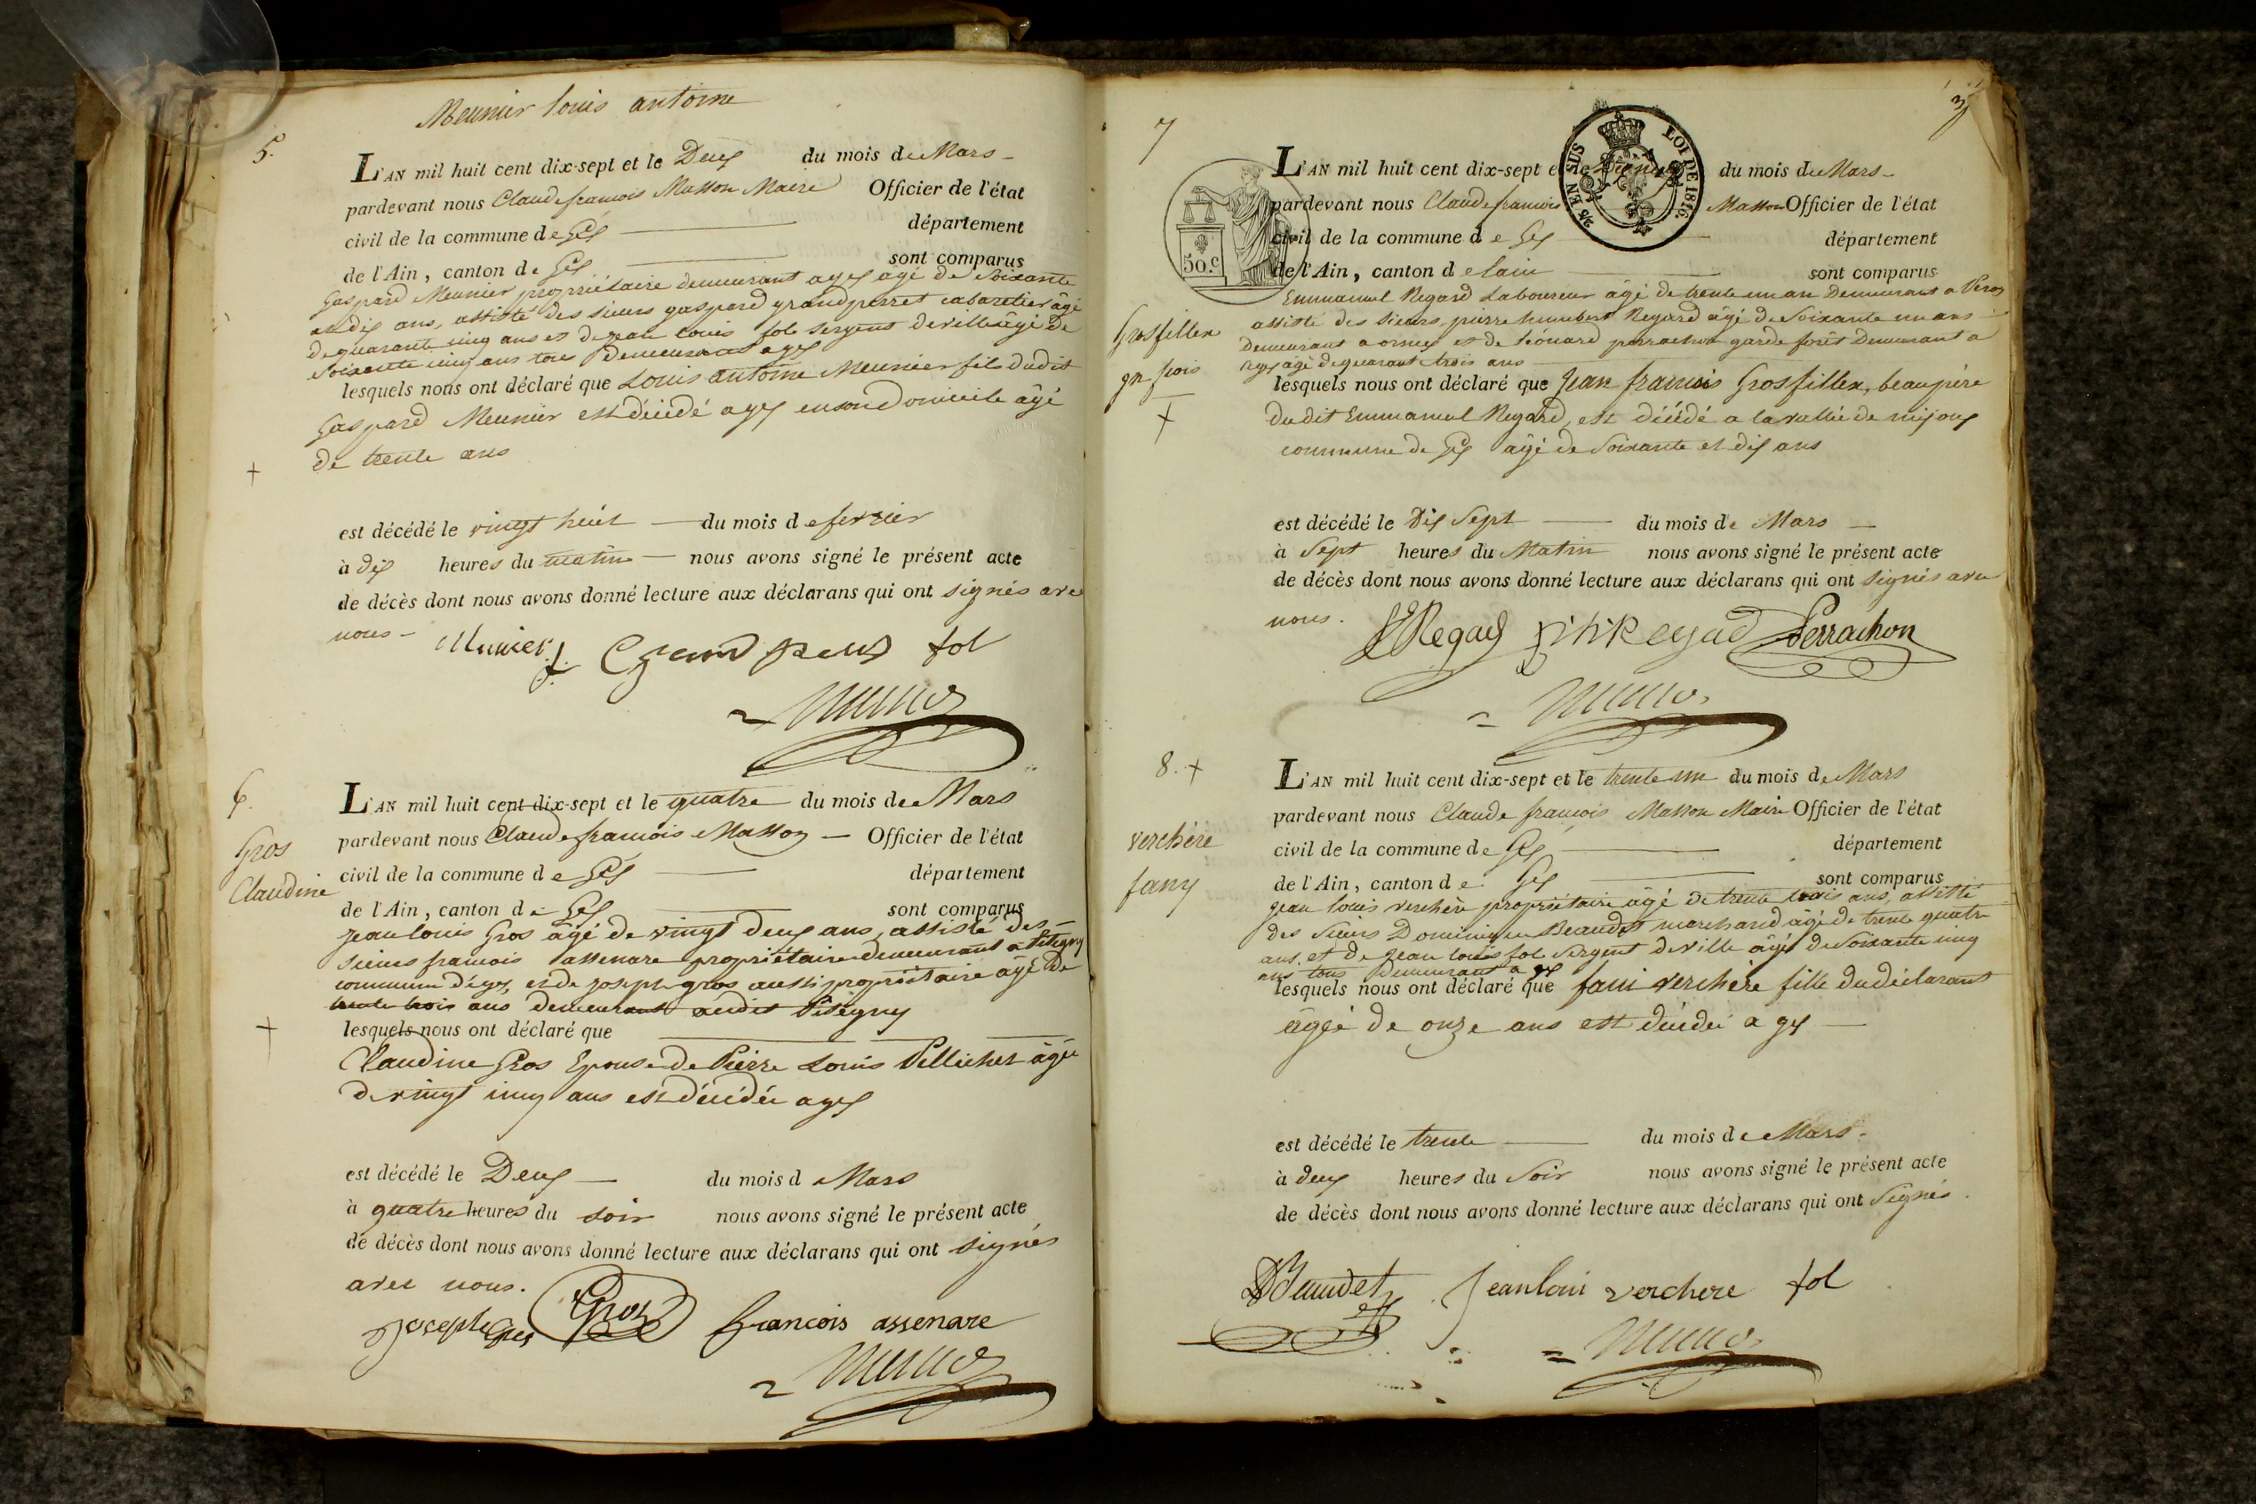 Meunier louis antoine
5.
L'AN mil huit cent dix-sept et le Deux du mois de Mars
pardevant nous Claude francois Masson Maire Officier de l'état
civil de la commune de Gex département
de l'Ain, canton de Gex sont comparus
Gaspard Meunier propriétaire demeurant a gex agé de Soixante
et dix ans, assisté des sieurs gaspard grandperret cabaretier âgé
de quarante cinq ans et de jean louis fol sergent de ville âgé de
Soixante cinq ans tous Demeurant a gex
lesquels nous ont déclaré que Louis antoine Meunier fils dudit
Gaspard Meunier est décédé a gex en son Domicile âgé
de trente ans
+
est décédé le vingt huit du mois de fervier
à dix heures du matin nous avons signé le présent acte
de décès dont nous avons donné lecture aux déclarans qui ont signés avec
nous
Munier fol
6.
Gros
Claudine
L'AN mil huit cent dix-sept et le quatre du mois de Mars
pardevant nous Claude francois Masson Officier de l'état
civil de la commune de Gex département
de l'Ain, canton de Gex sont comparus
Jean louis Gros âgé de vingt deux ans, assisté des
Sieurs francois assenare propriétaire demeurant a Pitegny
commune de gex, et de joseph gros aussi propriétaire âgé de
trente trois ans demeurant audit Pitegny
lesquels nous ont déclaré que
Claudine Gros Epouse de Pierre Louis Pellichet âgée
de vingt cinq ans est décédée a gex
+
est décédé le Deux du mois d Mars
à quatre heures du soir nous avons signé le présent acte
de décès dont nous avons donné lecture aux déclarans qui ont signés
avec nous.
joseph gros Gros francois assenare
7
L'AN mil huit cent dix-sept et le du mois de Mars
pardevant nous Claude francois Masson Officier de l'état
civil de la commune de Gex département
de l'Ain, canton de lain sont comparus
LOI DE 1816.
EN SUS
50.c
Emmanuel Regard Laboureur âgé de trente un an Demeurant a
assisté des Sieurs pierre humbert Regard âgé de Soixante un ans
Demeurant a ornex et de léonard perrachon garde forêt Demeurant a
gex âgé de quarant trois ans
Grosfillex
jn fcois
+
lesquels nous ont déclaré que Jean francois Grosfillex, beaupère
du dit Emmanuel Regard, est décédé a la vallée de mijoux
commune de Gex âgé de Soixante et dix ans
est décédé le Dix Sept du mois de Mars
à Sept heures du Matin nous avons signé le présent acte
de décès dont nous avons donné lecture aux déclarans qui ont signés avec
nous.
Perrachon
8. +
verchère
fany
L'AN mil huit cent dix-sept et le trente un du mois de Mars
pardevant nous Claude francois Masson Maire Officier de l'état
civil de la commune de Gex département
de l'Ain, canton de Gex sont comparus
Jean louis verchère propriétaire âgé de trente trois ans, assisté
des Sieurs Dominique Beaudet marchand âgé de trente quatre
ans et de Jean louis fol Sergent de ville âgé de Soixante cinq
ans tous Demeurant a gex
lesquels nous ont déclaré que fani verchère fille du déclarant
âgée de onze ans est décédée a gex
est décédé le trente du mois de Mars
à deux heures du Soir nous avons signé le présent acte
de décès dont nous avons donné lecture aux déclarans qui ont Signés.
Jean loui verchere fol